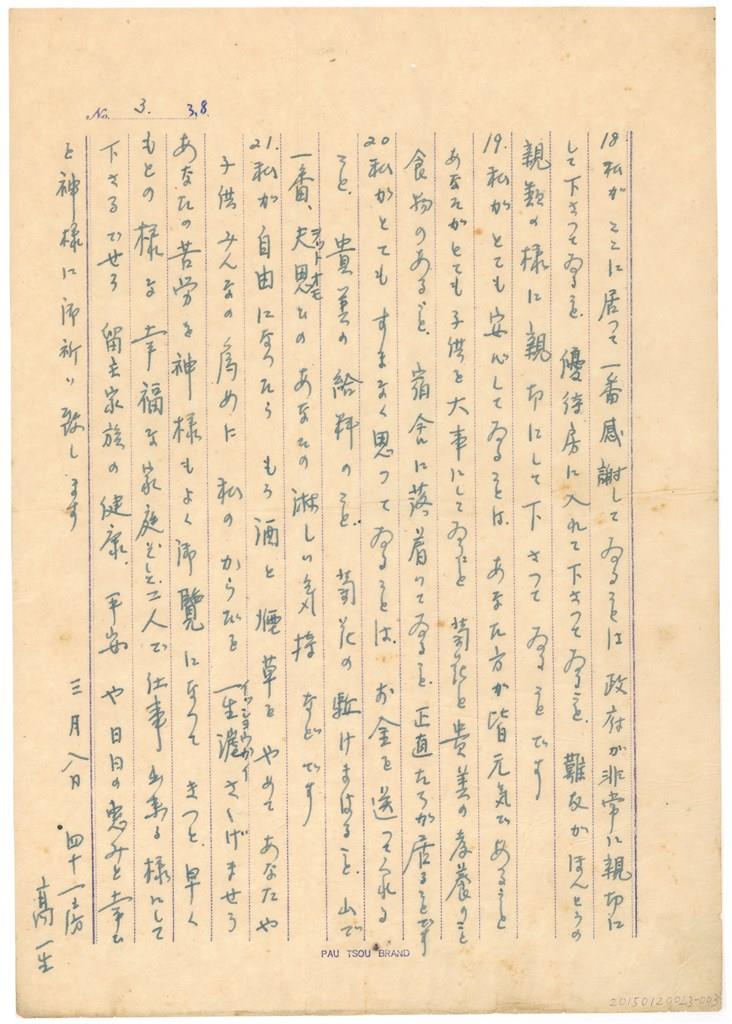 No. 3. 3,8
18 私がここに居って一番感謝してゐることは 政府が非常に親切に
して下さってゐること. 優待房に入れて下さってゐること. 難友がほんとうの
親類の様に親切にして下さってゐることです
19. 私がとても安心してゐることは. あなた方が皆元気であること
あなたがとても子供を大事にしてゐこと 菊花と貴美の孝養のこと
食物のあること. 宿舎に落着いてゐること. 正直たちが居ることです
20 私がとてもすまなく思ってゐることは. お金を送ってくれる
こと. 貴美の給料のこと. 菊花の駈けまはること. 山で
一番、夫思ひのあなたの淋しい気持などです
21. 私が自由になったら もう酒と煙草をやめてあなたや
子供みんなの為めに 私のからだを一生涯さゝげませう
イッショウガイ
あなたの苦労を神様もよく御覧になって きっと早く
もとの様な幸福な家庭そして二人で仕事出来る様にして
下さるでせう 留主家族の健康. 平安や日日の恵みと幸を
と神様に御祈り致します
三月八日 四十一房
高一生
PAU TSOU BRAND
20150120023-003